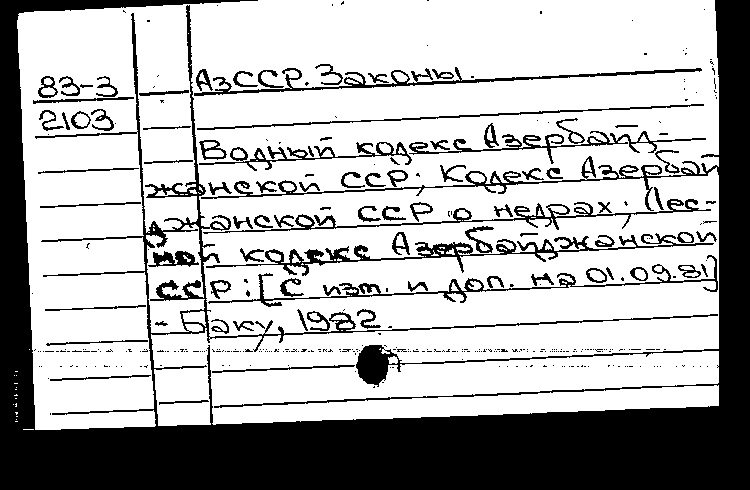 83-3
2103
АзССР. Законы.
Водный кодекс Азербайд-
жанской ССР; Кодекс Азербай
джанской ССР о недрах; Лес-
ной кодекс Азербайджанской
ССР: [С изм. и доп. на 01.09.81]
- Баку, 1982.